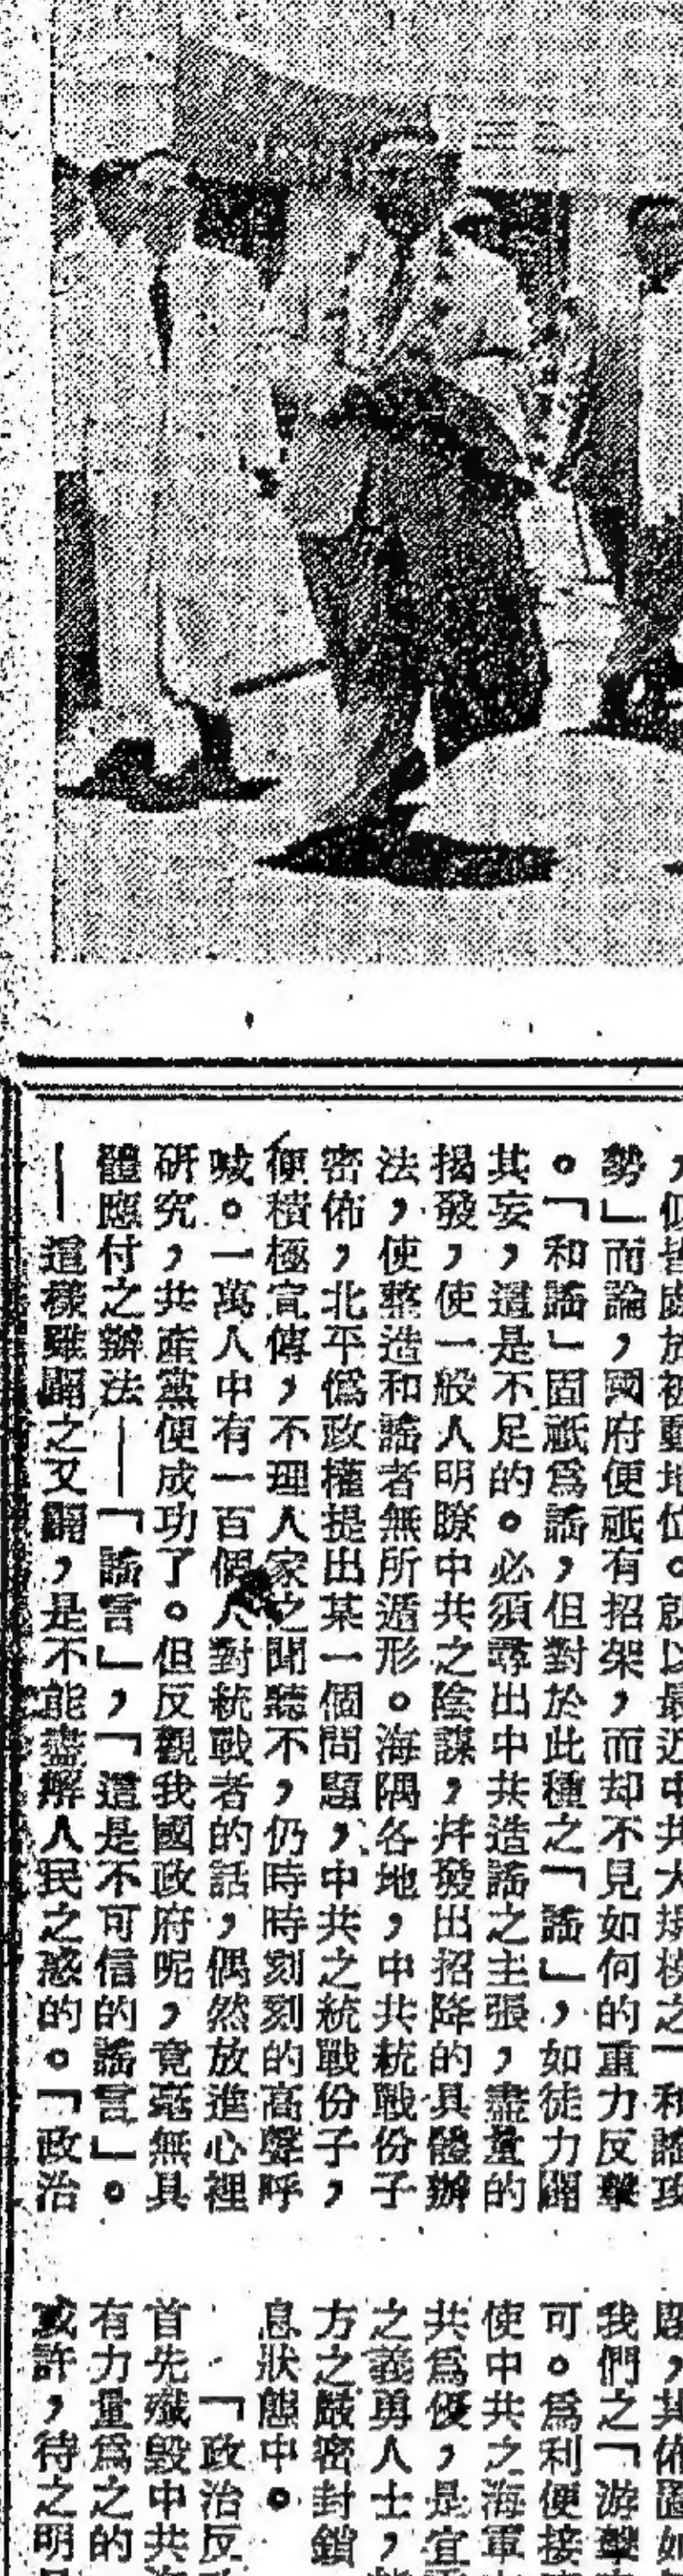 ，似皆處於被動地位。就以最近中共大規模之「和謠攻
勢」而論，國府便祇有招架，而却不見如何的重力反擊
。「和謠」固祇為謠，但對於此種之「謠」，如徒力闢
其妄，還是不足的。必須尋出中共造謠之主張，盡量的
揭發，使一般人明瞭中共之陰謀，并發出招降的具體辦
法，使整造和謠者無所遁形。海隅各地，中共統戰份子
密佈，北平偽政權提出某一個問題，中共之統戰份子，
便積極宣傳，不理人家之聞聽不，仍時時刻刻的高聲呼
喊。一萬人中有一百個人對統戰者的話，偶然放進心裡
研究，共產黨便成功了。但反觀我國政府呢，竟毫無具
體應付之辦法——「謠言」，「這是不可信的謠言」。
——這樣雖闢之又闢，是不能盡解人民之惑的。「政治
，其佈置如
我們之「游擊
可。為利便接
使中共之海軍
共為優，是宜
之義勇人士，
方之嚴密封鎖
息狀態中。
「政治反
首先殲毀中共
有力量為之的
或許，待之明